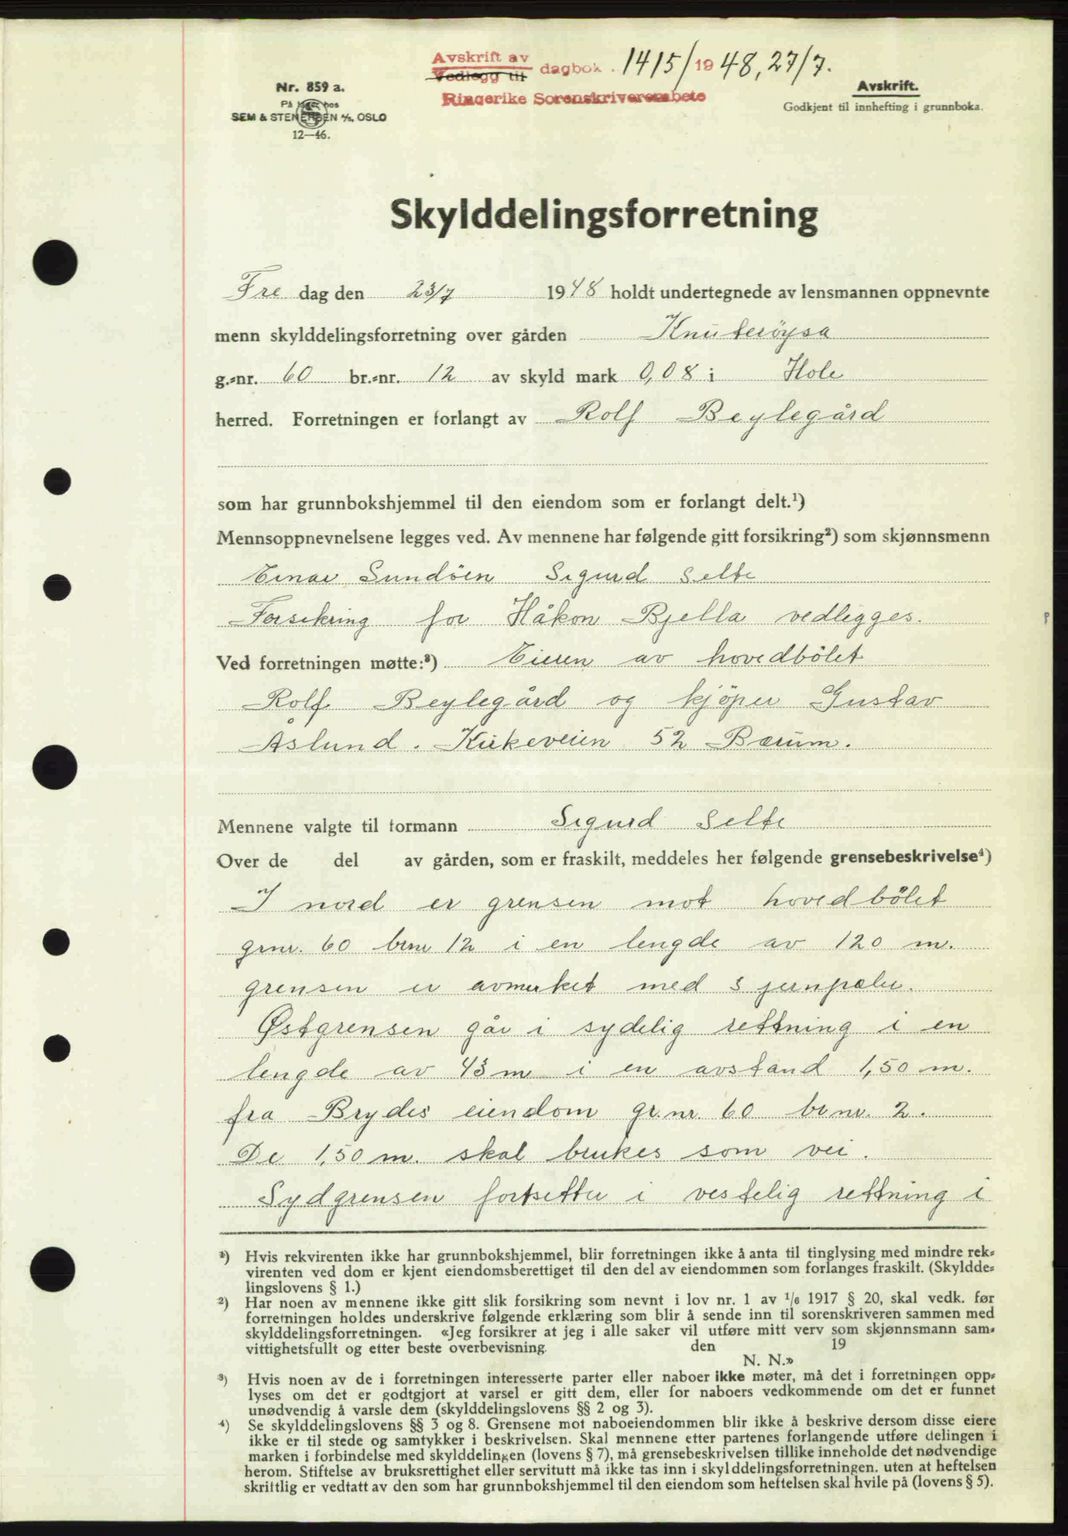 Avskrift av
Vedlegg til dagbok. 1415/1948, 27/7.
Ringerike Sorenskriverembete
Nr. 859 a.
På lager hos
SEM & STENERSEN A/S, OSLO
12—46.
Avskrift.
Godkjent til innhefting i grunnboka.
Skylddelingsforretning
Fre dag den 23/7 1948 holdt undertegnede av lensmannen oppnevnte
menn skylddelingsforretning over gården Knuterøysa
g.-nr. 60 br.-nr. 12 av skyld mark 0,08 i Hole
herred. Forretningen er forlangt av Rolf Beylegård
som har grunnbokshjemmel til den eiendom som er forlangt delt.¹)
Mennsoppnevnelsene legges ved. Av mennene har følgende gitt forsikring²) som skjønnsmenn
Einar Sundöen Sigurd Selte
Forsikring for Håkon Bjella vedligges.
Ved forretningen møtte:³) Eieren av hovedbölet
Rolf Beylegård og kjöper Gustav
Åslund. Kirkeveien 52 Bærum.
Mennene valgte til formann Sigurd Selte
Over de del av gården, som er fraskilt, meddeles her følgende grensebeskrivelse⁴)
I nord er grensen mot hovedbölet
grnr. 60 brnr 12 i en lengde av 120 m.
grensen er avmerket med 3 jernpæler.
Østgrensen går i sydelig rettning i en
lengde av 43 m i en avstand 1,50 m.
fra Brydes eiendom gr.nr. 60 brnr. 2.
De 1,50 m. skal brukes som vei.
Sydgrensen fortsetter i vestelig rettning i
¹) Hvis rekvirenten ikke har grunnbokshjemmel, blir forretningen ikke å anta til tinglysing med mindre rek-
virenten ved dom er kjent eiendomsberettiget til den del av eiendommen som forlanges fraskilt. (Skyldde-
lingslovens § 1.)
²) Har noen av mennene ikke gitt slik forsikring som nevnt i lov nr. 1 av 1/6 1917 § 20, skal vedk. før
forretningen holdes underskrive følgende erklæring som blir å sende inn til sorenskriveren sammen med
skylddelingsforretningen. «Jeg forsikrer at jeg i alle saker vil utføre mitt verv som skjønnsmann sam-
vittighetsfullt og etter beste overbevisning. den 19
N. N.»
³) Hvis noen av de i forretningen interesserte parter eller naboer ikke møter, må det i forretningen opp-
lyses om det er godtgjort at varsel er gitt dem, eller for naboers vedkommende om det er funnet
unødvendig å varsle dem (skylddelingslovens §§ 2 og 3).
⁴) Se skylddelingslovens §§ 3 og 8. Grensene mot naboeiendommen blir ikke å beskrive dersom disse eiere
ikke er til stede og samtykker i beskrivelsen. Skal mennene etter partenes forlangende utføre delingen i
marken i forbindelse med skylddelingen (lovens § 7), må grensebeskrivelsen tillike inneholde det nødvendige
herom. Stiftelse av bruksrettighet eller servitutt må ikke tas inn i skylddelingsforretningen. uten at heftelsen
skriftlig er vedtatt av den som har grunnbokshjemmel til den eiendom som heftelsen skal hvile på (lovens § 5).